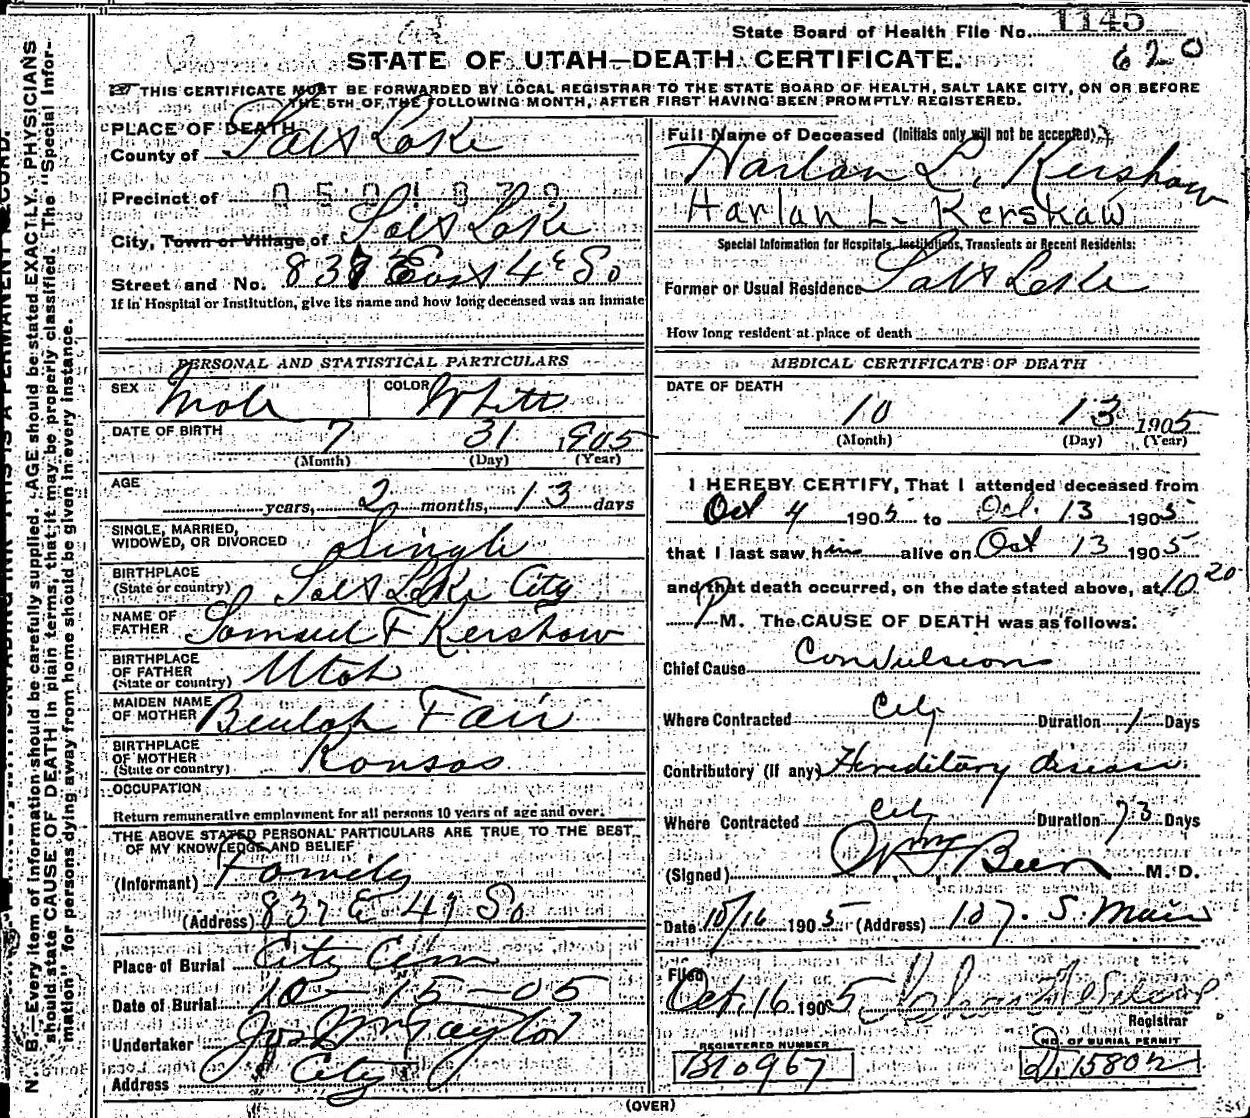 State Board of Health File No. 1145
620
STATE OF UTAH—DEATH CERTIFICATE.
THIS CERTIFICATE MUST BE FORWARDED BY LOCAL REGISTRAR TO THE STATE BOARD OF HEALTH, SALT LAKE CITY, ON OR BEFORE
THE 5TH OF THE FOLLOWING MONTH, AFTER FIRST HAVING BEEN PROMPTLY REGISTERED.
PLACE OF DEATH
County of Salt Lake
Precinct of 0501879
City, Town or Village of Salt Lake
Street and No. 837 East 4th So
If in Hospital or Institution, give its name and how long deceased was an inmate
PERSONAL AND STATISTICAL PARTICULARS
SEX Male COLOR White
DATE OF BIRTH 7 31 1905
(Month) (Day) (Year)
AGE
years, 2 months, 13 days
SINGLE, MARRIED,
WIDOWED, OR DIVORCED Single
BIRTHPLACE
(State or country) Salt Lake City
NAME OF
FATHER Samuel F Kershaw
BIRTHPLACE
OF FATHER
(State or country) Utah
MAIDEN NAME
OF MOTHER Beulah Fair
BIRTHPLACE
OF MOTHER
(State or country) Kansas
OCCUPATION
Return remunerative employment for all persons 10 years of age and over.
THE ABOVE STATED PERSONAL PARTICULARS ARE TRUE TO THE BEST
OF MY KNOWLEDGE AND BELIEF
(Informant) Family
(Address) 837 E 4th So
Place of Burial City Cem
Date of Burial 10-15-05
Undertaker Jos Wm Taylor
Address City
Full Name of Deceased (Initials only will not be accepted)
Harlan L. Kershaw
Harlan L. Kershaw
Special Information for Hospitals, Institutions, Transients or Recent Residents:
Former or Usual Residence Salt Lake
How long resident at place of death
MEDICAL CERTIFICATE OF DEATH
DATE OF DEATH
10 13 1905
(Month) (Day) (Year)
I HEREBY CERTIFY, That I attended deceased from
Oct 4 1905 to Oct. 13 1905
that I last saw him alive on Oct 13 1905
and that death occurred, on the date stated above, at 10 20
P M. The CAUSE OF DEATH was as follows:
Chief Cause Convulsions
Where Contracted City Duration 1 Days
Contributory (if any) Hereditary disease
Where Contracted City Duration 73 Days
(Signed) M. D.
Date 10/16 1905 (Address) 107. S. Main
Filed
Oct. 16 1905
Registrar
REGISTERED NUMBER
B10967
NO. OF BURIAL PERMIT
D.15802
(OVER)
N. B.—Every item of information should be carefully supplied. AGE should be stated EXACTLY. PHYSICIANS
should state CAUSE OF DEATH in plain terms, that it may be properly classified. The "Special Infor-
mation" for persons dying away from home should be given in every instance.